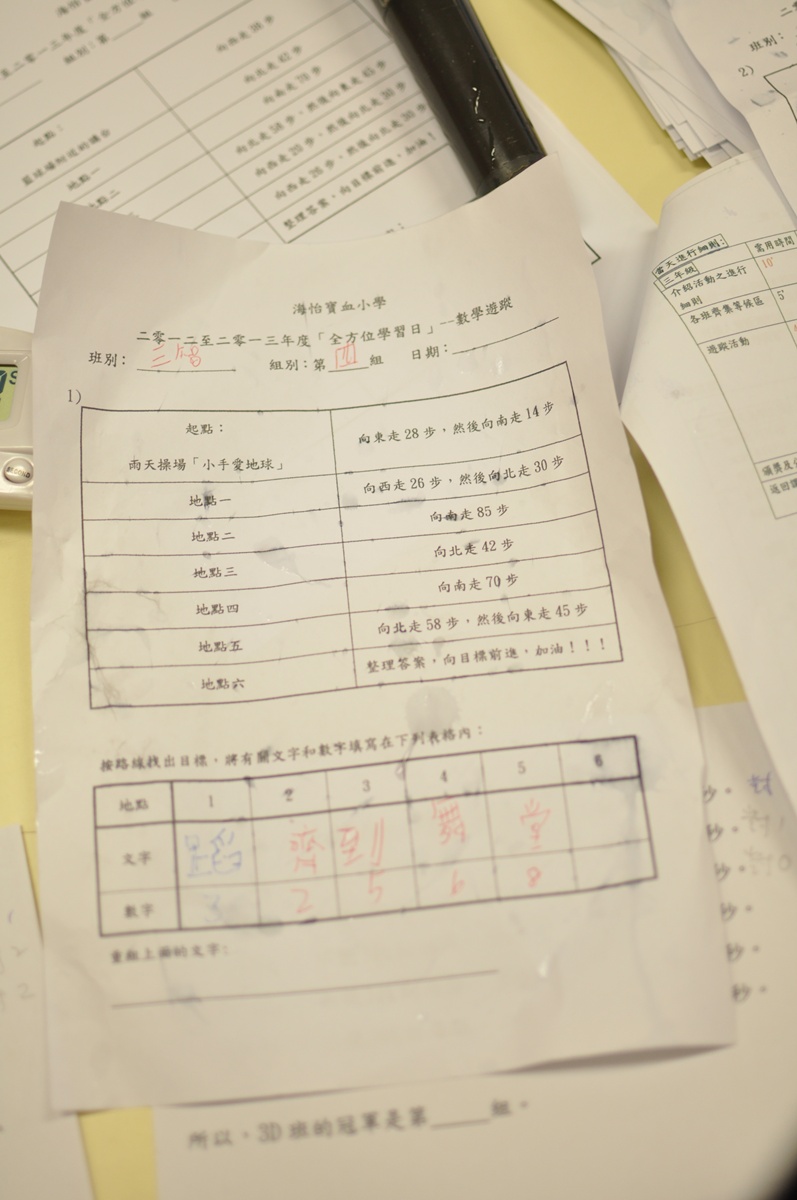 海怡寶血小學
二零一二至二零一三年度「全方位學習日」--數學遊蹤
班別： 三 組別：第 四 組 日期：
1)
起點： 雨天操場「小手愛地球」 向東走 28 步，然後向南走 14 步
地點一 向西走 26 步，然後向北走 30 步
地點二 向南走 85 步
地點三 向北走 42 步
地點四 向南走 70 步
地點五 向北走 58 步，然後向東走 45 步
地點六 整理答案，向目標前進，加油！！！
按路線找出目標，將有關文字和數字填寫在下列表格內：
地點 1 2 3 4 5 6
文字 齊 到 舞 堂
數字 3 2 5 6 8
重組上面的文字：
所以，3D 班的冠軍是第 組。
起點：
籃球場附近的講台
地點一
地點二
向西走 20 步，然後向北走 30 步
整理答案，向目標前進，加油！
班別：
2)
當天進行細則：
三年級 需用時間
介紹活動之進行細則 10'
各班齊集等候區 5'
遊蹤活動
秒。
秒。
秒。
秒。
秒。
秒。